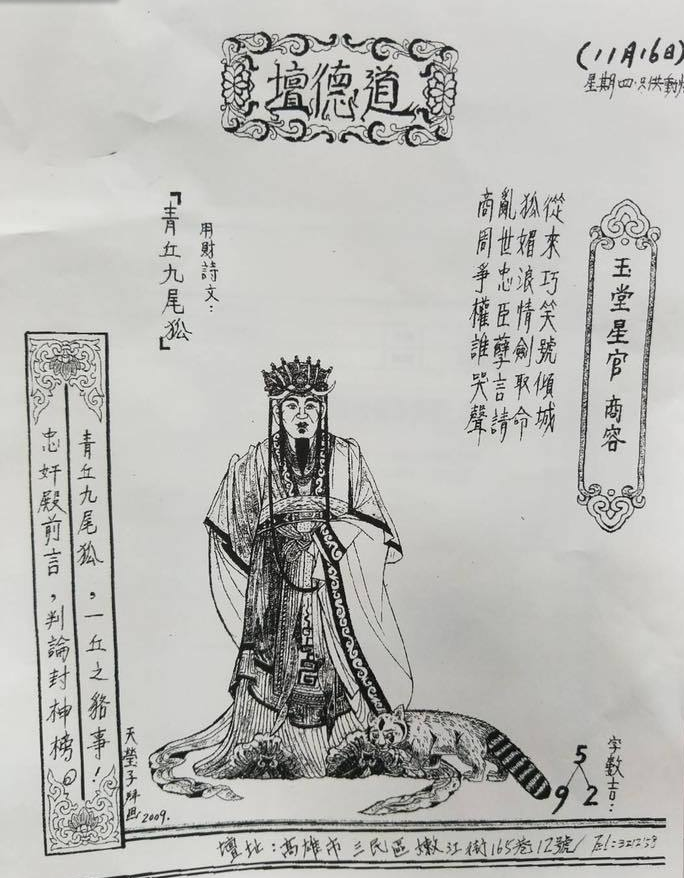 道德壇
(11月16日)
星期四
玉堂星官 商容
從來巧笑號傾城
狐媚浪情劍取命
亂世忠臣孽言請
商周爭權誰哭聲
用財詩文:
「青丘九尾狐」
青丘九尾狐,一丘之貉事!
忠奸殿前言,判論封神榜。
天瑩子
2009.
字數吉:
5
9 2
壇址:高雄市三民區嫩江街165巷12號